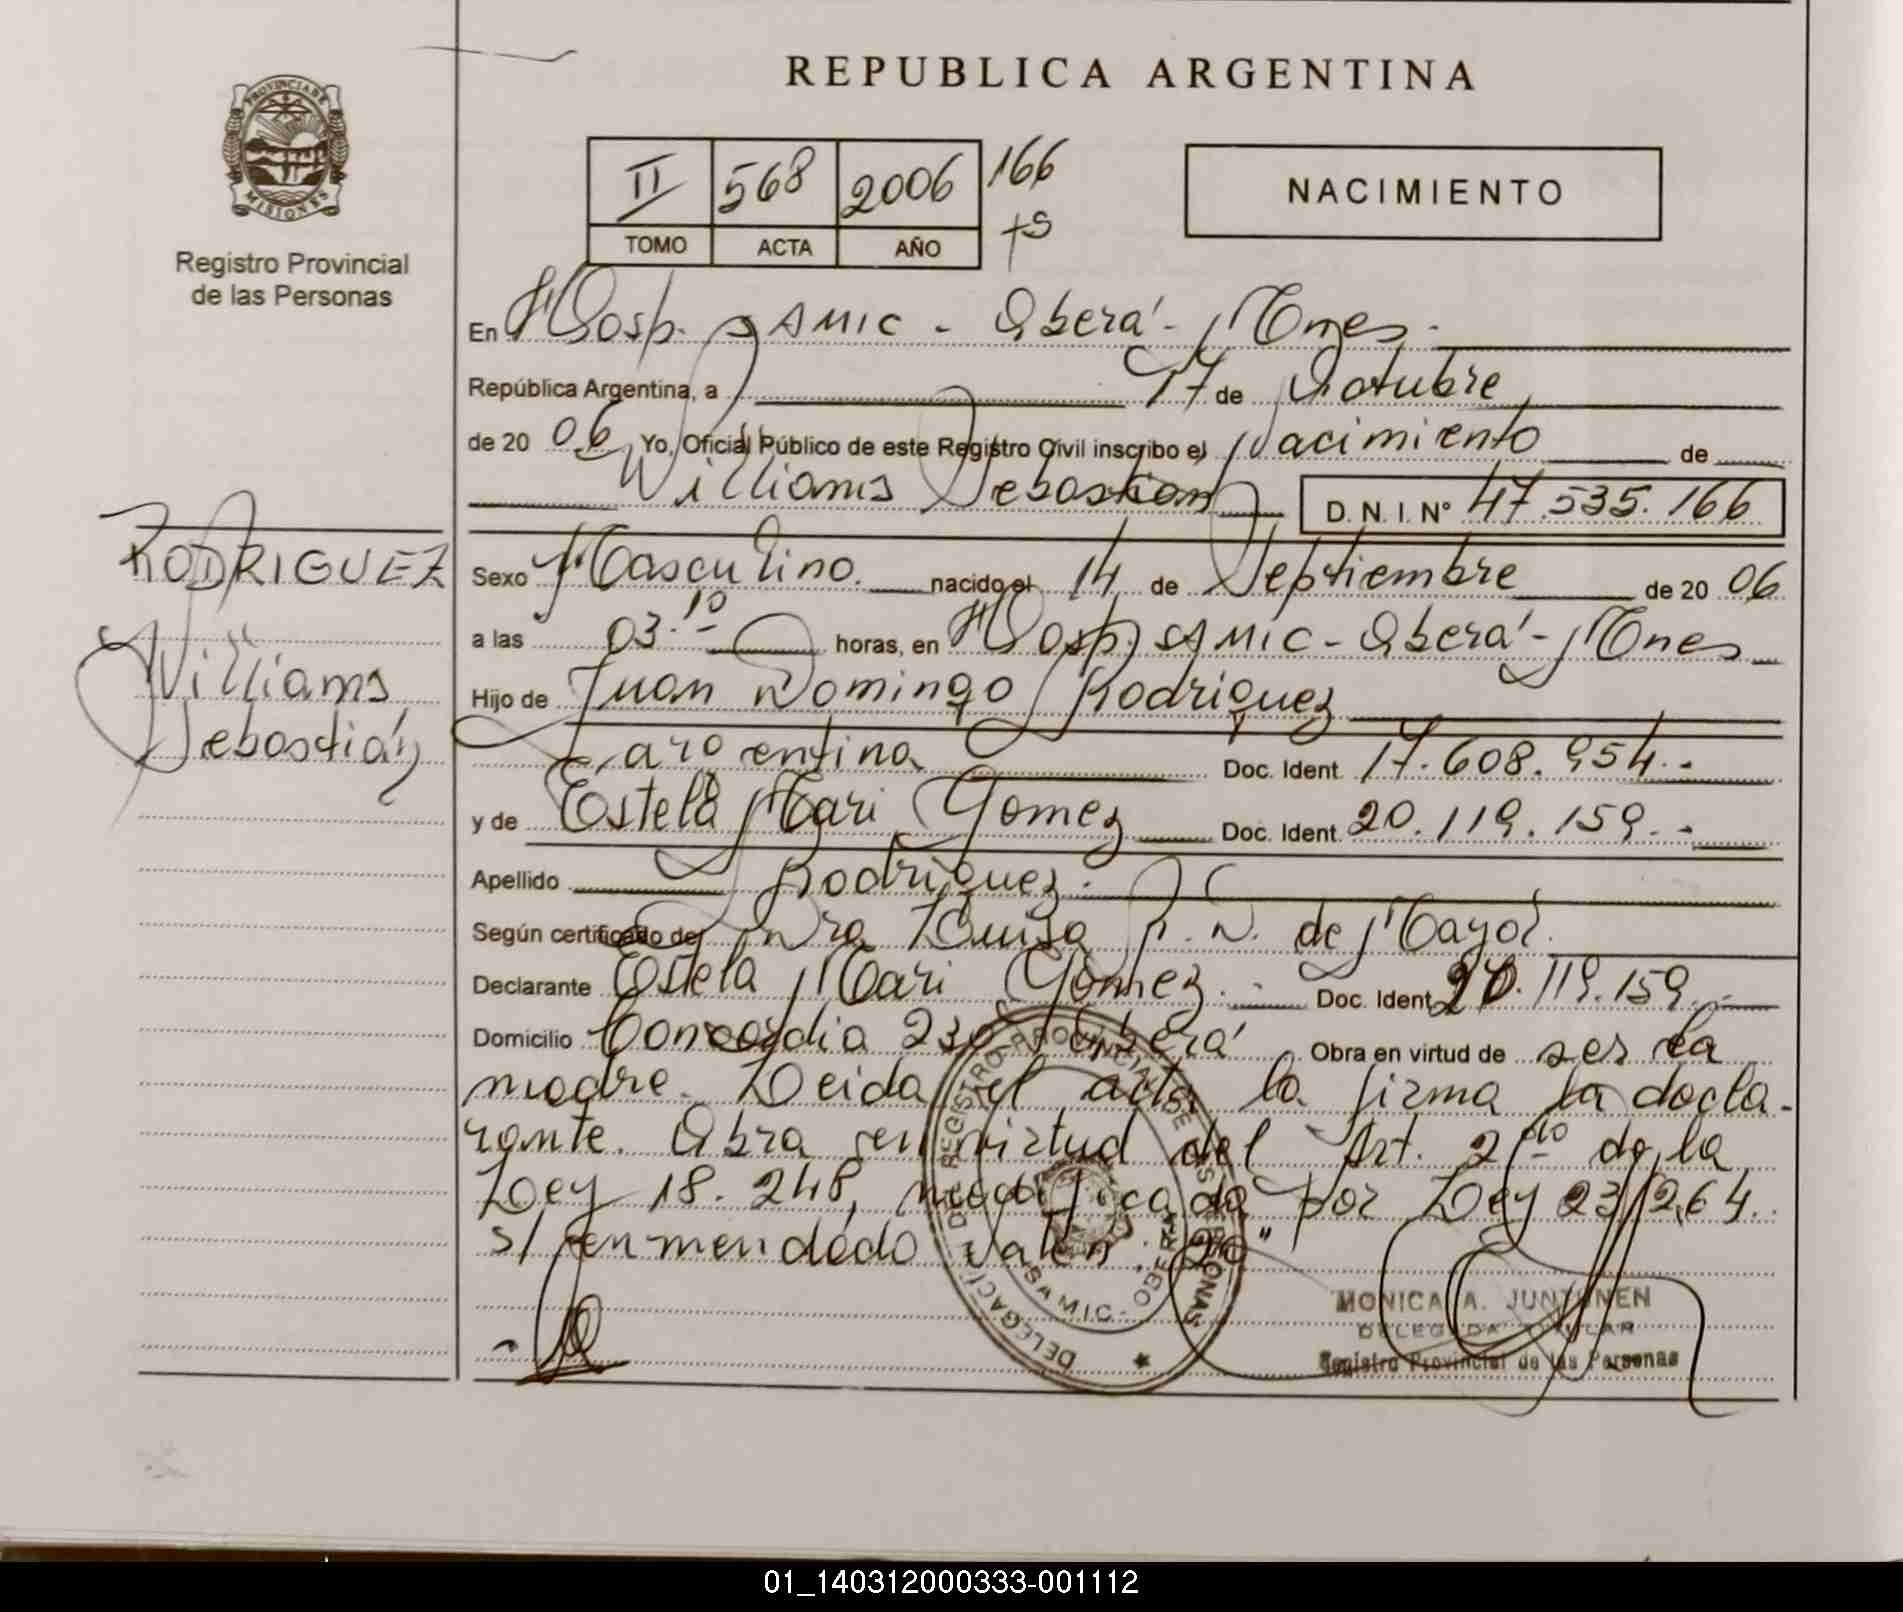 REPUBLICA ARGENTINA
PROVINCIA DE MISIONES
Registro Provincial
de las Personas
II 568 2006 166
TOMO ACTA AÑO ts
NACIMIENTO
En Hosp. SAMIC - Oberá - Mnes.
República Argentina, a 17 de Octubre
de 20 06 Yo, Oficial Público de este Registro Civil inscribo el Nacimiento de
Williams Sebastian D.N.I. Nº 47.535.166
RODRIGUEZ
Williams
Sebastián
Sexo Masculino. nacido el 14 de Septiembre de 20 06
a las 03.10 horas, en Hosp. SAMIC - Oberá - Mnes
Hijo de Juan Domingo Rodriguez
argentino Doc. Ident. 17.608.954.-
y de Estela Mari Gomez Doc. Ident. 20.119.159.-
Apellido Rodriguez.
Según certificado de Dra Luisa P. N. de Mayol.
Declarante Estela Mari Gomez. Doc. Ident. 20.119.159.-
Domicilio Concordia 230 Oberá Obra en virtud de ser la
madre. Leida el acta la firma la decla-
rante. Obra en virtud del Art. 2do de la
Ley 18.248, modificada por Ley 23.264.
s/ enmendado Vale: "20"
DELEGACION REGISTRO PROVINCIAL DE LAS PERSONAS
SAMIC - OBERA
MONICA A. JUNTUNEN
DELEGADA TITULAR
Registro Provincial de las Personas
01_140312000333-001112